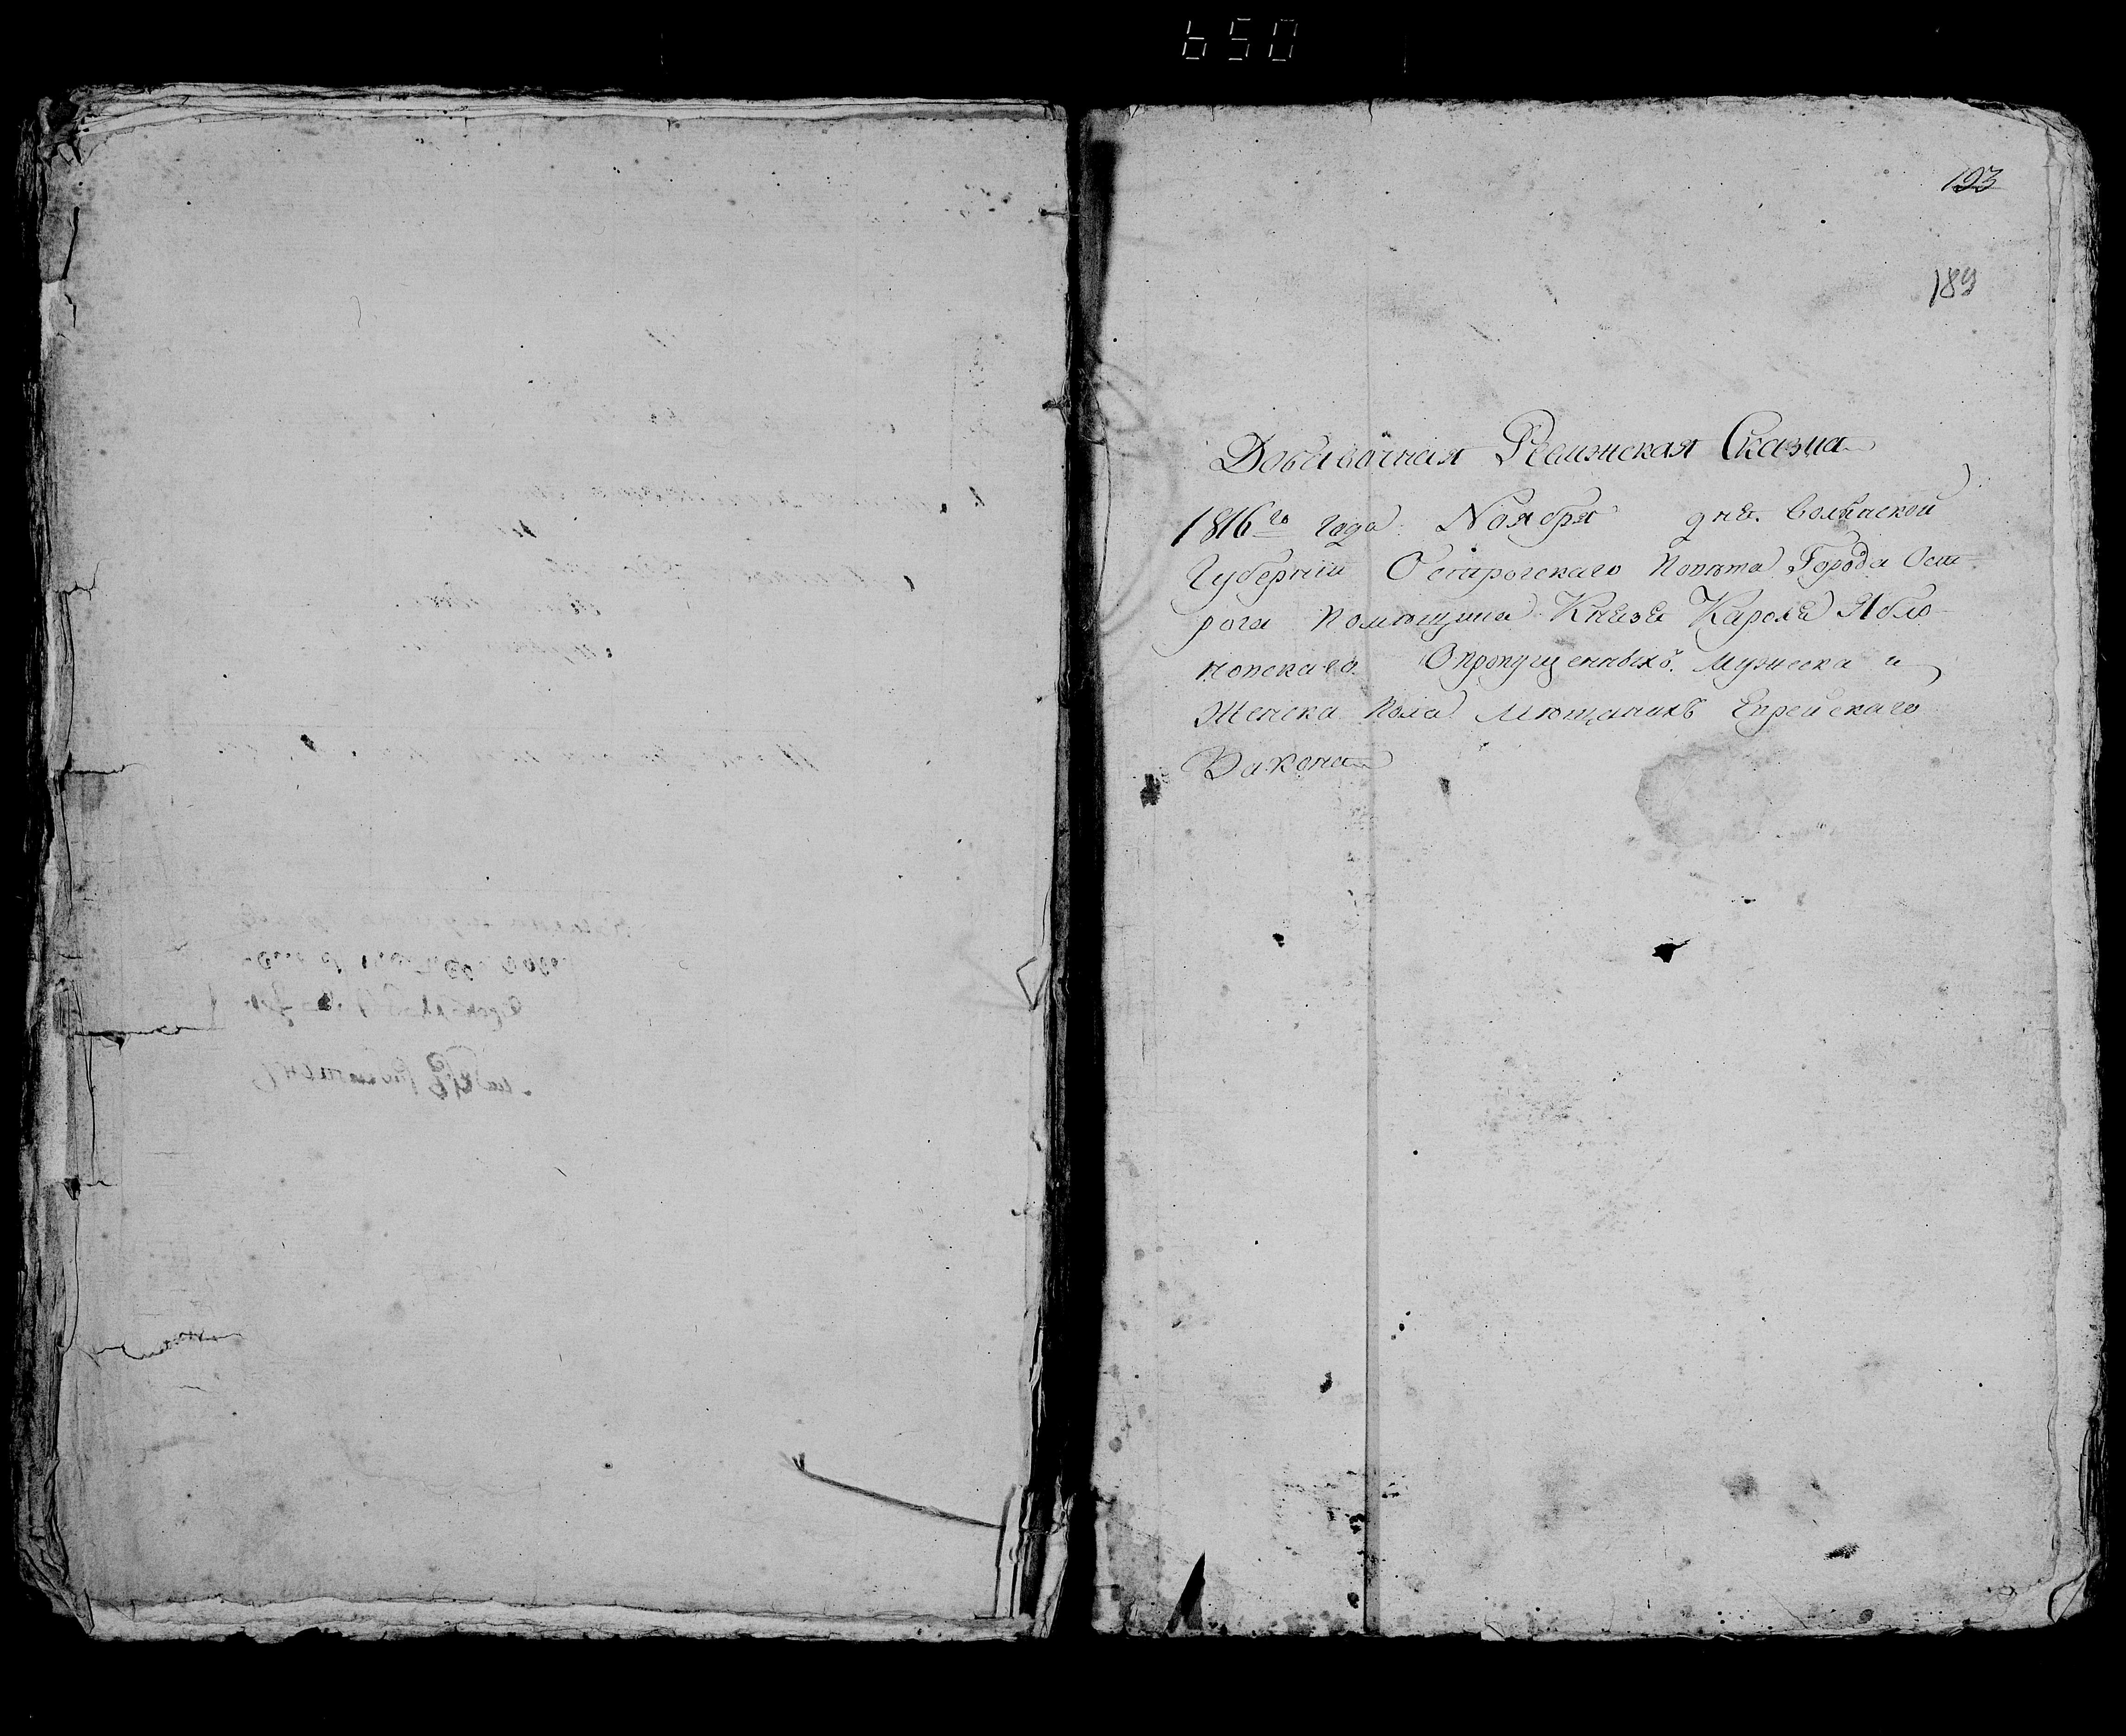 650
193
189
Добавочная Ревизская Сказка
1816го года Ноября дня. Волынской
Губернии Острогского Повѣта Города Ост-
рога Помѣщика Князя Кароля Ябло-
новскаго О пропущенныхъ Мужеска и
Женска Пола Мѣщанахъ Еврейскаго
Закона